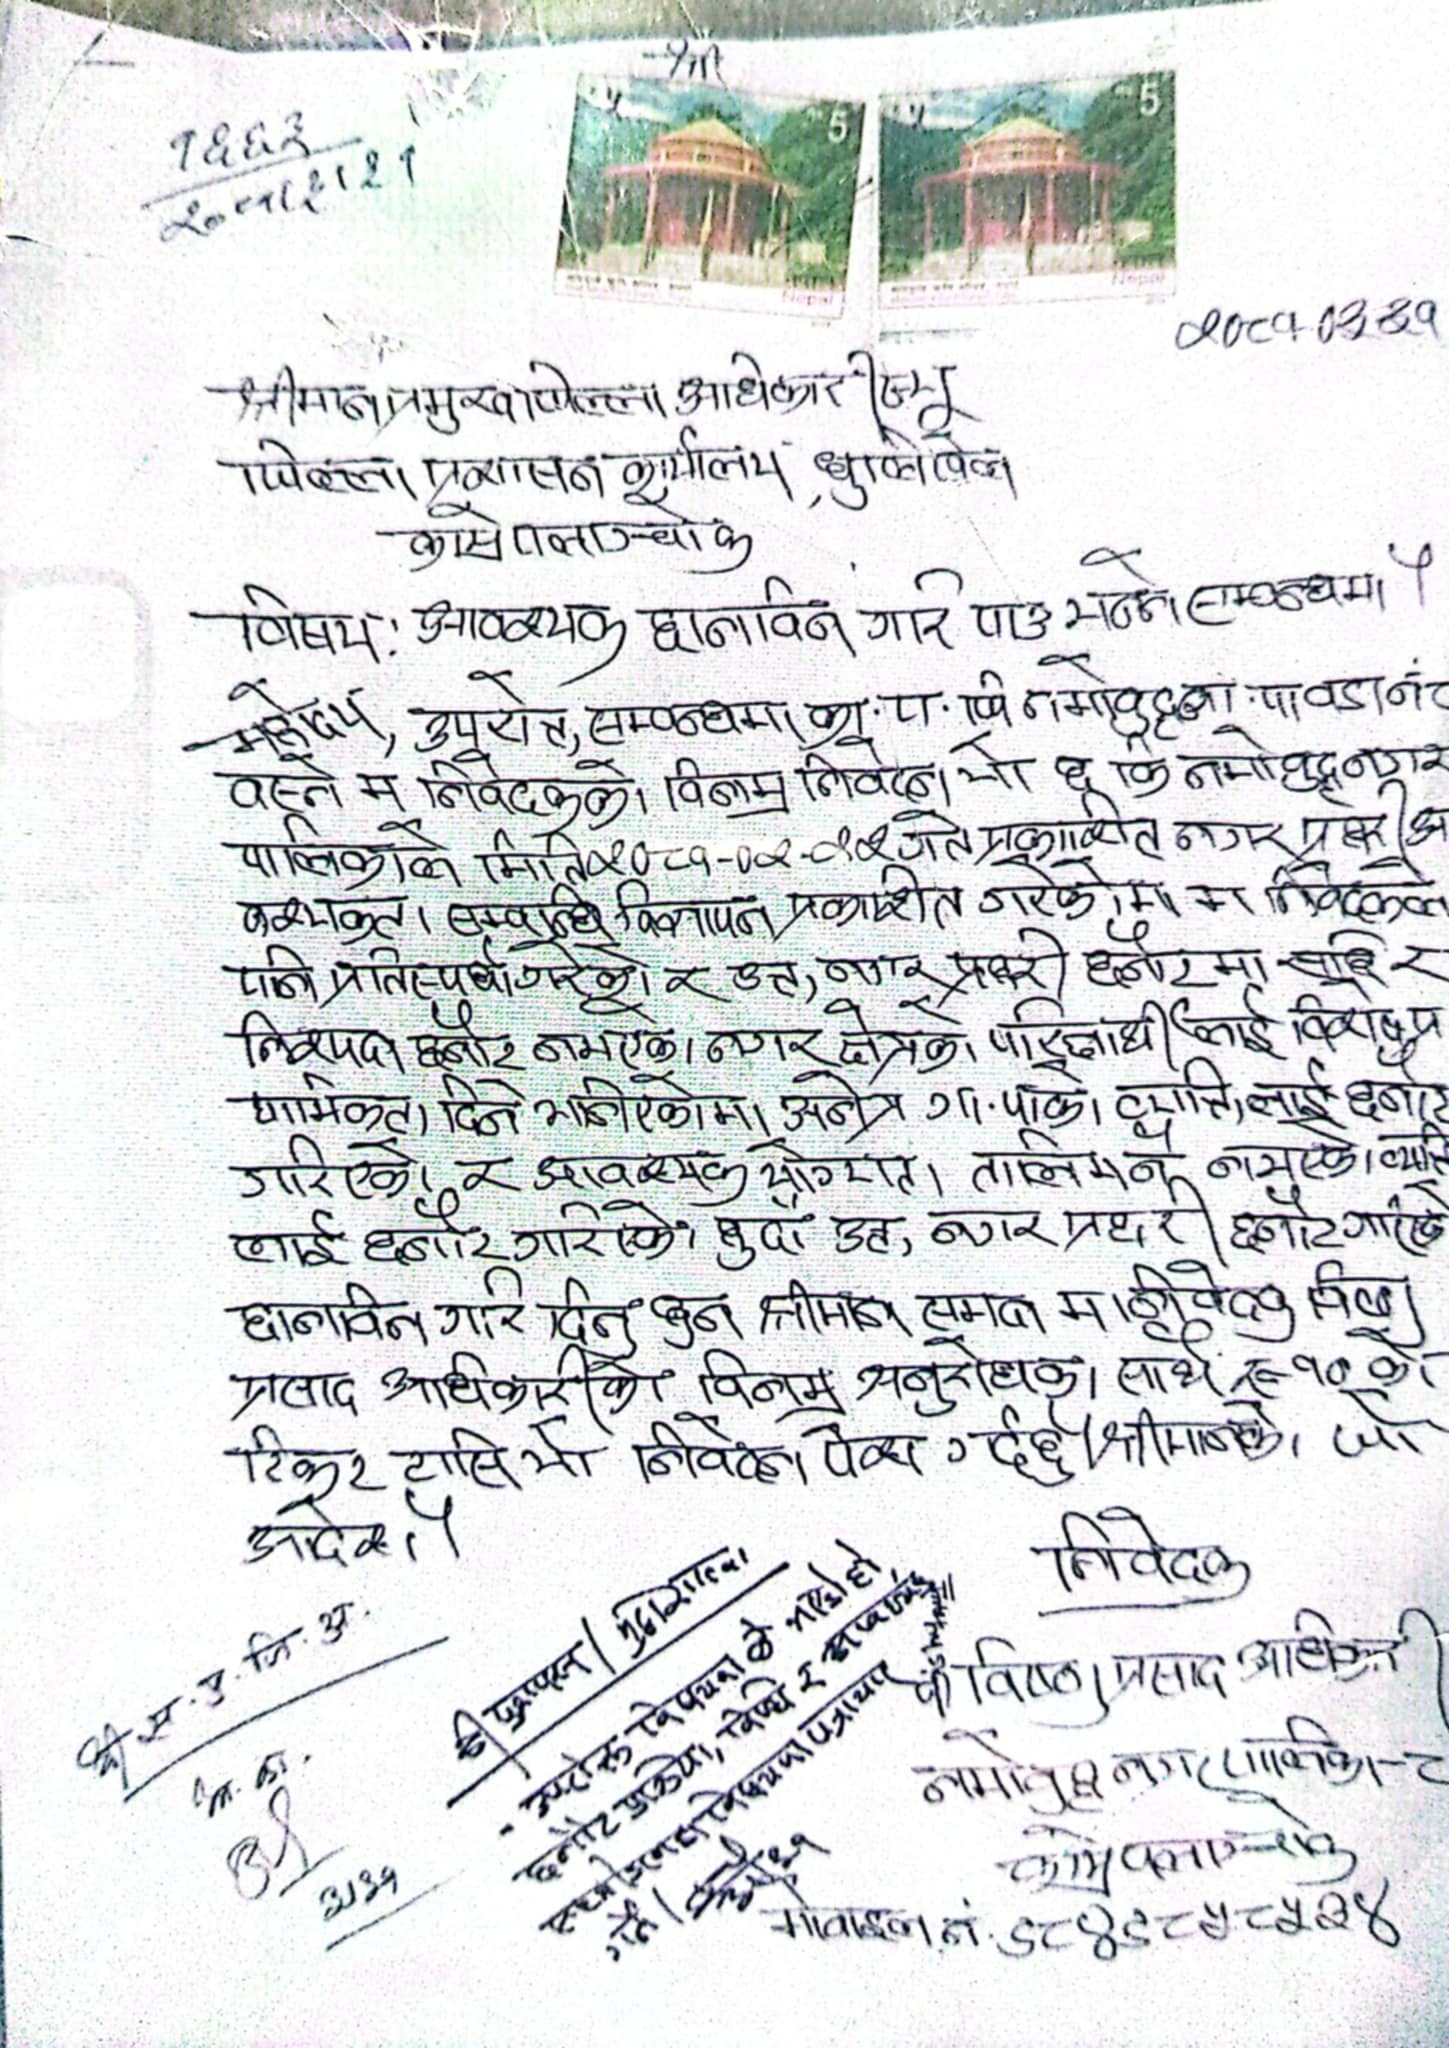 १६६३
२०८१।३।२१
5
5
Nepal
Nepal
२०८१-०३-२१
श्रीमान प्रमुख जिल्ला अधिकारी ज्यू
जिल्ला प्रशासन कार्यालय, धुलिखेल
काभ्रेपलाञ्चोक
विषय: आवश्यक छानविन गरि पाउ भन्ने सम्वन्धमा।
महोदय, उपरोक्त सम्वन्धमा का.प. जि नमोबुद्ध न.पा वडा नं ८
वस्ने म निवेदकको विनम्र निवेदन यो छ कि नमोबुद्ध नगर
पालिकाले मिति २०८१-०२-२२ गते प्रकाशित नगर प्रहरी आ
वश्यकता सम्वन्धि विज्ञापन प्रकाशीत गरेकोमा म निवेदकले
पनि प्रतिस्पर्धा गरेको र उक्त नगर प्रहरी छनौटमा र
निश्पक्ष छनौट नभएको नगर क्षेत्रको परिक्षार्थी लाई प्र
थामिकता दिने भनिएकोमा अनेत्र गा.पाको व्यक्ति लाई छनौट
गरिएको र आवश्यक योग्यता तालिम नै नभएको व्यक्ति
लाई छनौट गरिएको हुदा उक्त नगर प्रहरी छनौट
छानविन गरि दिनु हुन श्रीमान समक्ष म निवेदक विष्णु
प्रसाद अधिकारीको विनम्र अनुरोधका साथ रु १० को
टिकट टासि यो निवेदन पेश गर्दछु। श्रीमानको जो
आदेश।
निवेदक
विष्णु प्रसाद अधिकारी
नमोबुद्ध नगरपालिका-८
काभ्रेपलाञ्चोक
मोवाइल नं. ९८४९८५८५२४
श्री स.प्र.जि.अ.
३।२१
श्री प्रशासन / मुद्दा शाखा
उपरोक्त विषयमा के भएको हो,
छनौट प्रक्रिया, विधि र
विषयमा पत्राचार
गर्ने।